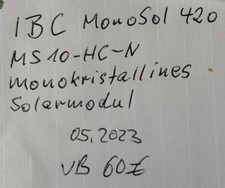 IBC MonoSol 420
MS10-HC-N
monokristallines
Solarmodul
05.2023
VB 60€